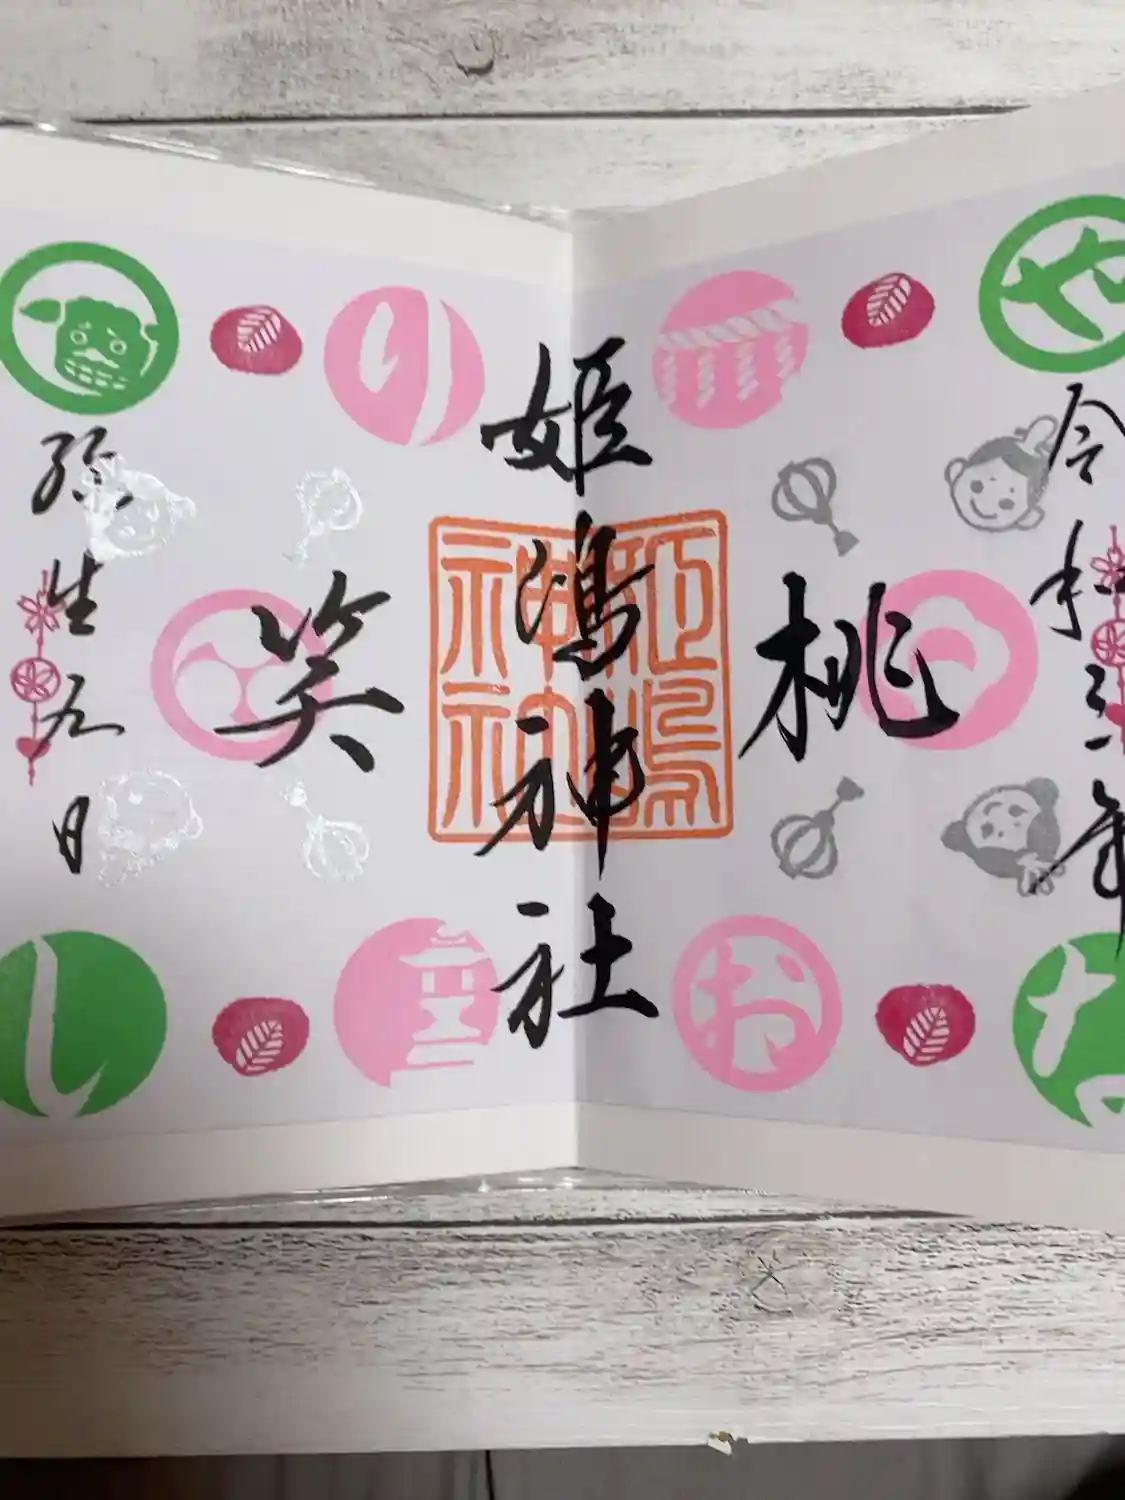 令和三年
桃
姫嶋神社
笑
弥生九日
や
の
お
し
た
姫嶋神社